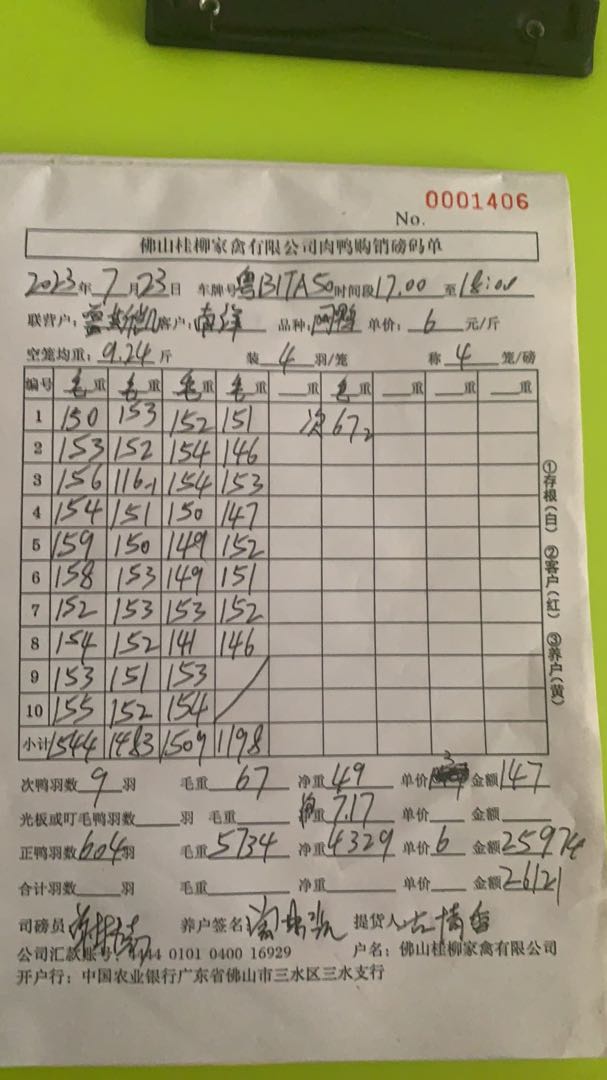 0001406
No.
佛山桂柳家禽有限公司肉鸭购销磅码单
2023年7月23日 车牌号粤B1TA50时间段17.00至18:00
联营户： 客户：南洋 品种： 单价：6元/斤
空笼均重：9.24斤 装4羽/笼 称4笼/磅
编号 毛重 毛重 毛重 毛重 重 毛重 重 重 重
1 150 153 152 151 次 67 2
2 153 152 154 146
3 156 116-1 154 153
4 154 151 150 147
5 159 150 149 152
6 158 153 149 151
7 152 153 153 152
8 154 152 141 146
9 153 151 153
10 155 152 154
小计 1544 1483 1509 1198
①存根(白) ②客户(红) ③养户(黄)
次鸭羽数9羽 毛重67 净重49 单价3 金额147
光板或叮毛鸭羽数 羽 毛重 重7.17 单价 金额
正鸭羽数604羽 毛重5734 净重4329 单价6 金额25974
合计羽数 羽 毛重 净重 单价 金额26121
司磅员 养户签名 提货人
公司汇款账号：4444 0101 0400 16929 户名：佛山桂柳家禽有限公司
开户行：中国农业银行广东省佛山市三水区三水支行